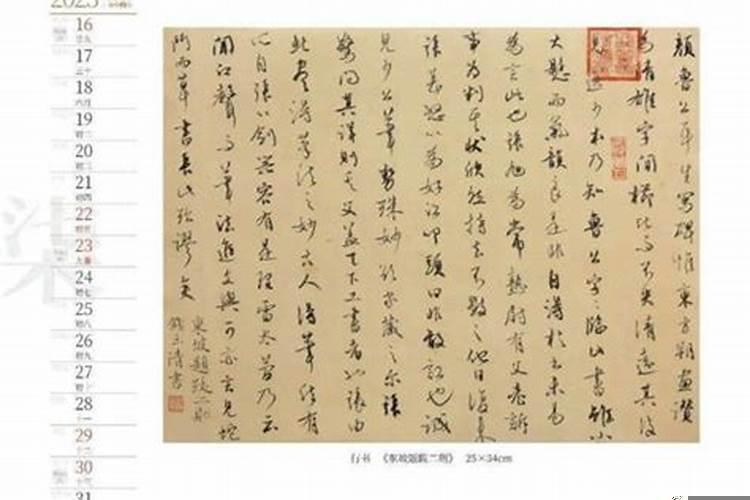 2023
16
17
18
19
20
21
22
23
24
25
26
27
28
29
30
31
顏魯公平生寫碑惟東方朔畫讚
為清雄字間櫛比而不失清遠其後
見逸少本乃知魯公字〻臨此書雖小
大懸而氣韻良是非自得於書未易
為言此也張旭為常熟尉有父老訴
事為判其狀欣然持去不數〻他日復來
張甚怒以為好訟叩頭曰非敢訟也誠
見少公筆勢殊妙欲家藏之尔張
驚問其詳則其父蓋天下工書者也張由
此盡得筆法之妙古人得筆法有
所自張以劍器容有是理雷太簡乃云
聞江聲而筆法進文與可亦言見蛇
鬥而草書長此殆謬矣
東坡題跋二則
行书 《东坡题跋二则》 25×34cm